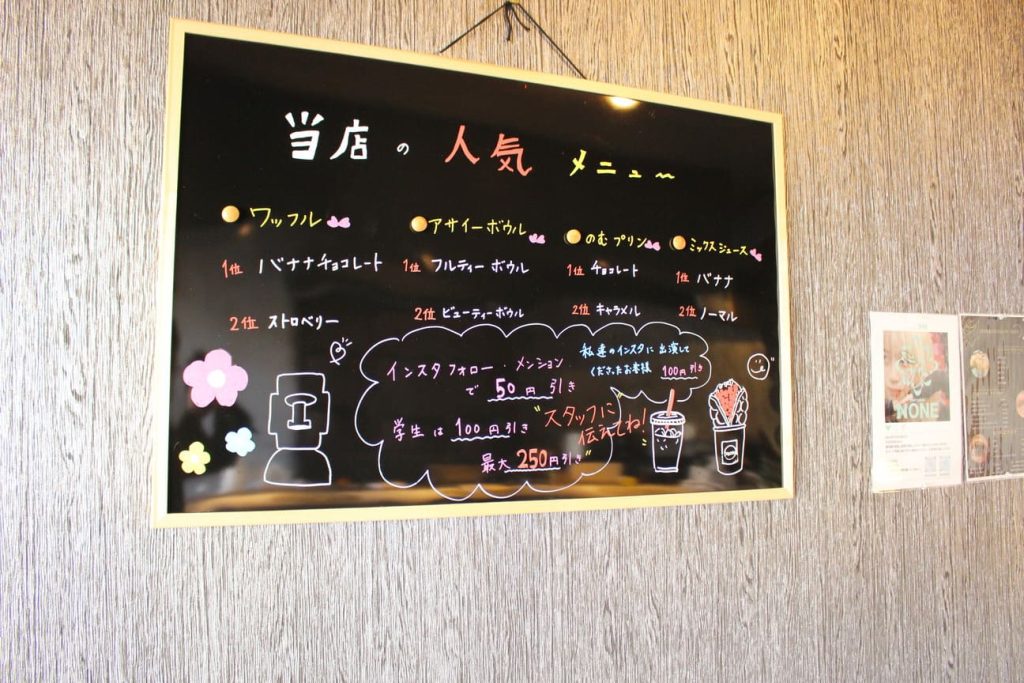 当店の人気メニュー
ワッフル
1位 バナナチョコレート
2位 ストロベリー
アサイーボウル
1位 フルティーボウル
2位 ビューティーボウル
のむプリン
1位 チョコレート
2位 キャラメル
ミックスジュース
1位 バナナ
2位 ノーマル
インスタフォロー・メンション
で 50円引き
学生は 100円引き
最大 250円引き
私達のインスタに出演して
くださったお客様 100円引き
"スタッフに
伝えてね!"
NONE